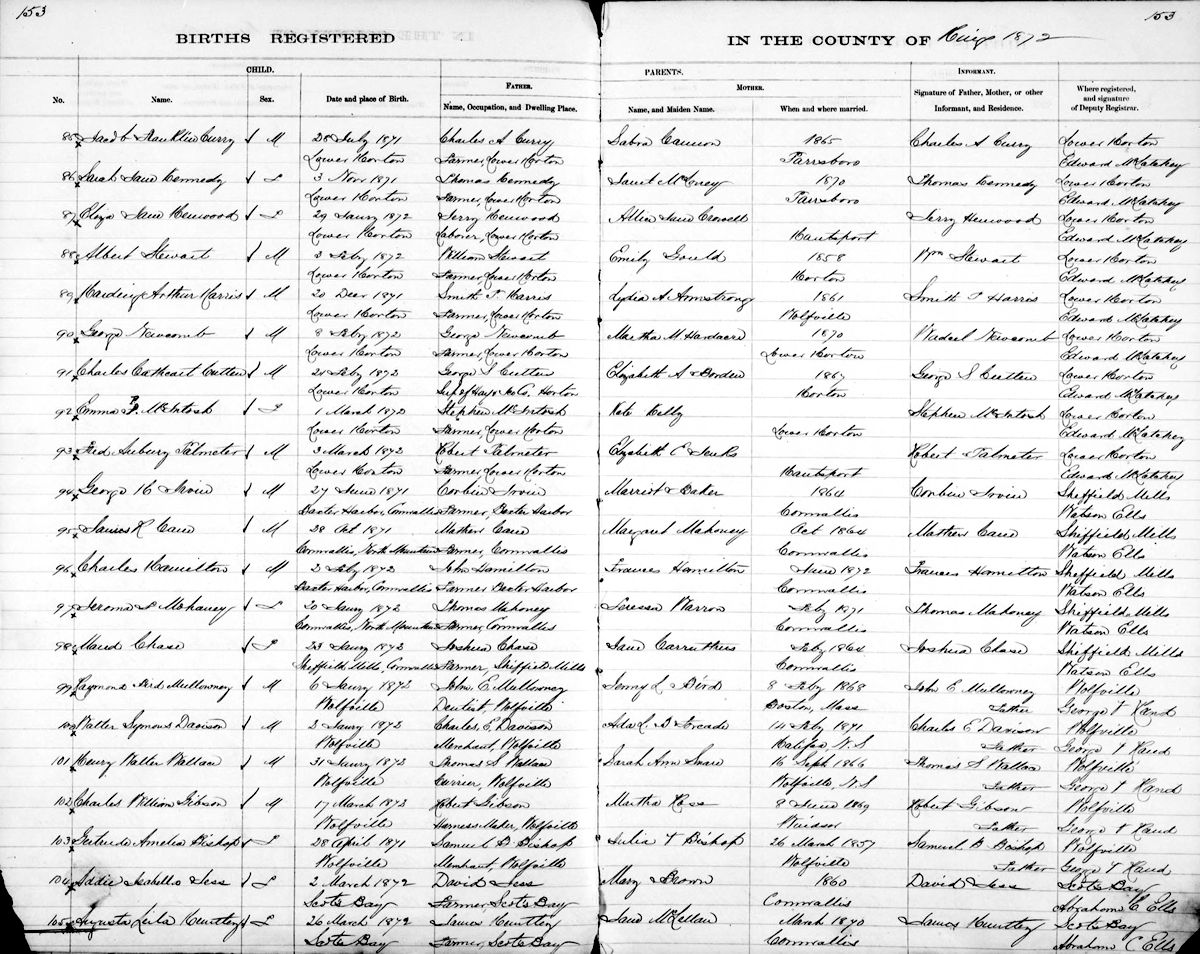 153
153
BIRTHS REGISTERED
IN THE COUNTY OF Kings 1872
CHILD.
PARENTS.
INFORMANT.
Where registered, and signature of Deputy Registrar.
FATHER.
MOTHER.
No.
Name.
Sex.
Date and place of Birth.
Name, Occupation, and Dwelling Place.
Name, and Maiden Name.
When and where married.
Signature of Father, Mother, or other Informant, and Residence.
85 Jacob Franklin Curry M 28 July 1871 Charles A Curry Sabra Cannon 1865 Charles A Curry Lower Horton
Lower Horton Farmer, Lower Horton Parrsboro Edward McLatchey
86 Sarah Jane Kennedy F 3 Novr 1871 Thomas Kennedy Janet 1870 Thomas Kennedy Lower Horton
Lower Horton Farmer, Lower Horton Parrsboro Edward McLatchey
87 Eliza Jane Henwood F 29 Janry 1872 Jerry Henwood Jane Crowell Jerry Henwood Lower Horton
Lower Horton Laborer, Lower Horton Hantsport Edward McLatchey
88 Albert Stewart M 3 Feby 1872 William Stewart Emily Gould 1858 Wm Stewart Lower Horton
Lower Horton Farmer, Lower Horton Horton Edward McLatchey
89 Harding Arthur Harris M 20 Decr 1871 Smith T Harris Lydia A Armstrong 1861 Smith T Harris Lower Horton
Lower Horton Farmer, Lower Horton Wolfville Edward McLatchey
90 George Newcomb M 8 Feby 1872 George Newcomb Martha M Hardacre 1870 Newcomb Lower Horton
Lower Horton Farmer, Lower Horton Lower Horton Edward McLatchey
91 Charles Cathcart Cutten M 21 Feby 1872 George S Cutten Elizabeth A Borden 1867 George S Cutten Lower Horton
Lower Horton Horton Horton Edward McLatchey
92 Emma P. McIntosh F 1 March 1872 Stephen McIntosh Kate Kelly Stephen McIntosh Lower Horton
Lower Horton Farmer, Lower Horton Lower Horton Edward McLatchey
93 Fred Asbury Palmeter M 3 March 1872 Robert Palmeter Elizabeth C Jenks Robert Palmeter Lower Horton
Lower Horton Farmer, Lower Horton Hantsport Edward McLatchey
94 George H Irvin M 27 June 1871 Corbin Irvin Baker 1864 Corbin Irvin Sheffield Mills
Baxter Harbor, Cornwallis Farmer, Baxter Harbor Cornwallis Watson Ells
95 James R Cane M 28 Oct 1871 Mathew Cane Margaret Mahoney Oct 1864 Mathew Cane Sheffield Mills
Cornwallis, North Mountain Farmer, Cornwallis Cornwallis Watson Ells
96 Charles Hamilton M 2 Feby 1872 John Hamilton Frances Hamilton June 1872 Frances Hamilton Sheffield Mills
Baxter Harbor, Cornwallis Farmer Baxter Harbor Cornwallis Watson Ells
97 Jeroma F Mahoney F 20 Janry 1872 Thomas Mahoney Teressa Warron Feby 1871 Thomas Mahoney Sheffield Mills
Cornwallis, North Mountain Farmer, Cornwallis Cornwallis Watson Ells
98 Maud Chase F 23 Janry 1872 Joshua Chase Jane Carruthers Feby 1864 Joshua Chase Sheffield Mills
Sheffield Mills, Cornwallis Farmer, Sheffield Mills Cornwallis Watson Ells
99 Raymond Bird Mullowney M 6 Janry 1872 John E Mullowney Jenny L Bird 8 Feby 1868 John E Mullowney Wolfville
Wolfville Dentist, Wolfville Boston, Mass Father George T Hand
100 Walter Symons Davison M 2 Janry 1872 Charles E. Davison Ada L. B 14 Feby 1871 Charles E Davison Wolfville
Wolfville Merchant, Wolfville Halifax, N.S Father George T Hand
101 Henry Walter Wallace M 31 Janry 1872 Thomas S Wallace Sarah Ann 16 Sept 1866 Thomas S Wallace Wolfville
Wolfville Currier, Wolfville Wolfville, N.S Father George T Hand
102 Charles William Gibson M 17 March 1872 Robert Gibson Martha Ross 9 June 1869 Robert Gibson Wolfville
Wolfville Harness Maker, Wolfville Windsor Father George T Hand
103 Gertrude Amelia Bishop F 28 April 1871 Samuel B Bishop Julia T Bishop 26 March 1857 Samuel B Bishop Wolfville
Wolfville Merchant, Wolfville Wolfville Father George T Hand
104 Addie Isabella Jess F 2 March 1872 David Jess Mary Brown 1860 David Jess Scots Bay
Scots Bay Farmer, Scots Bay Cornwallis Abraham C Ells
105 Augusta Leila Huntley F 26 March 1872 James Huntley Jane McLellan March 1870 James Huntley Scots Bay
Scots Bay Farmer, Scots Bay Cornwallis Abraham C Ells